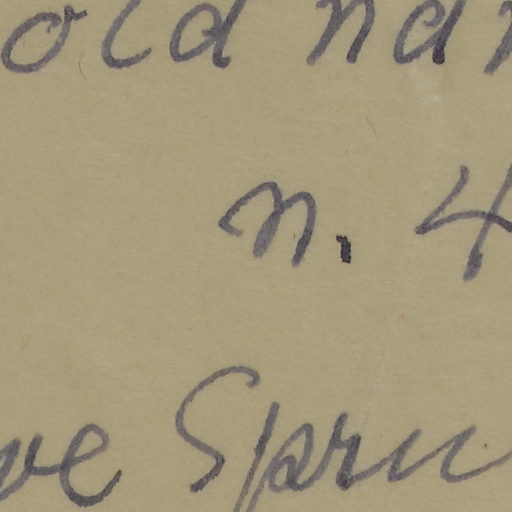 old na
n. 4
ve Spru